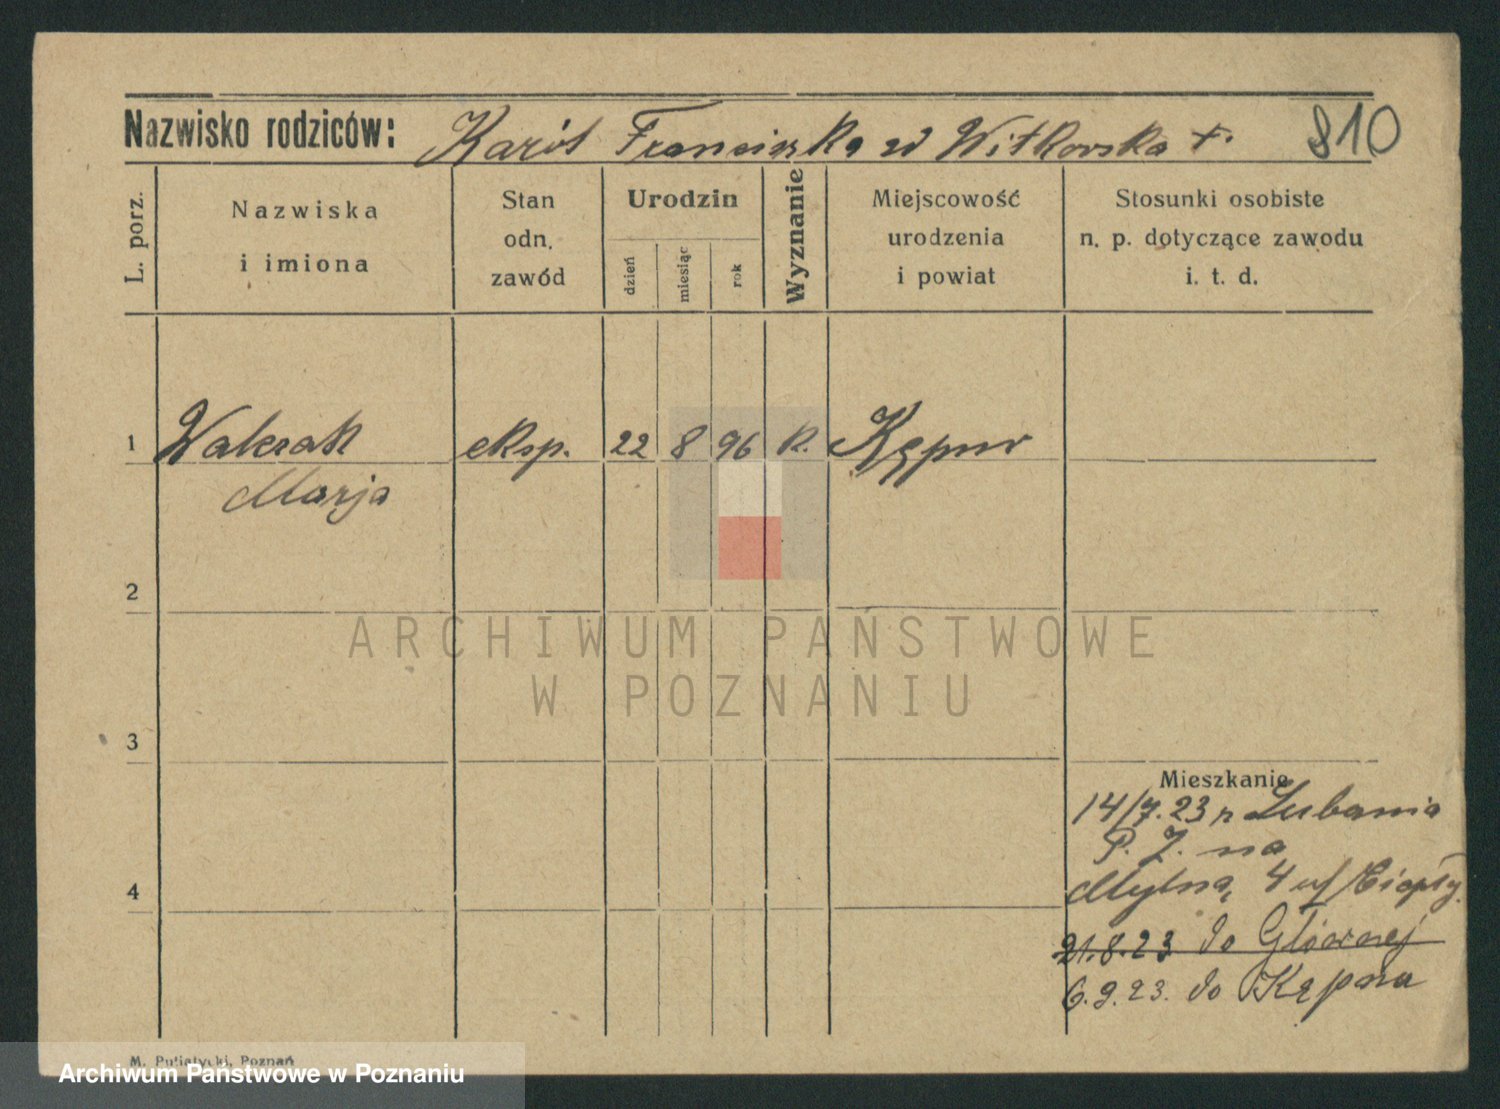 Nazwisko rodziców: Karól Franciszka zd Witkowska +. 810
L. porz.
Nazwiska
i imiona
Stan
odn.
zawód
Urodzin
dzień
miesiąc
rok
Wyznanie
Miejscowość
urodzenia
i powiat
Stosunki osobiste
n. p. dotyczące zawodu
i. t. d.
1 Walczak eksp. 22 8 96 k. Kępno
Marja
2
ARCHIWUM PAŃSTWOWE
W POZNANIU
3
Mieszkanie
14/7.23 z Lubania
P. Z. na
4
Mylna, 4 u/
21.8.23 do Głównej
6.9.23. do Kępna
M. Putiatycki, Poznań
Archiwum Państwowe w Poznaniu